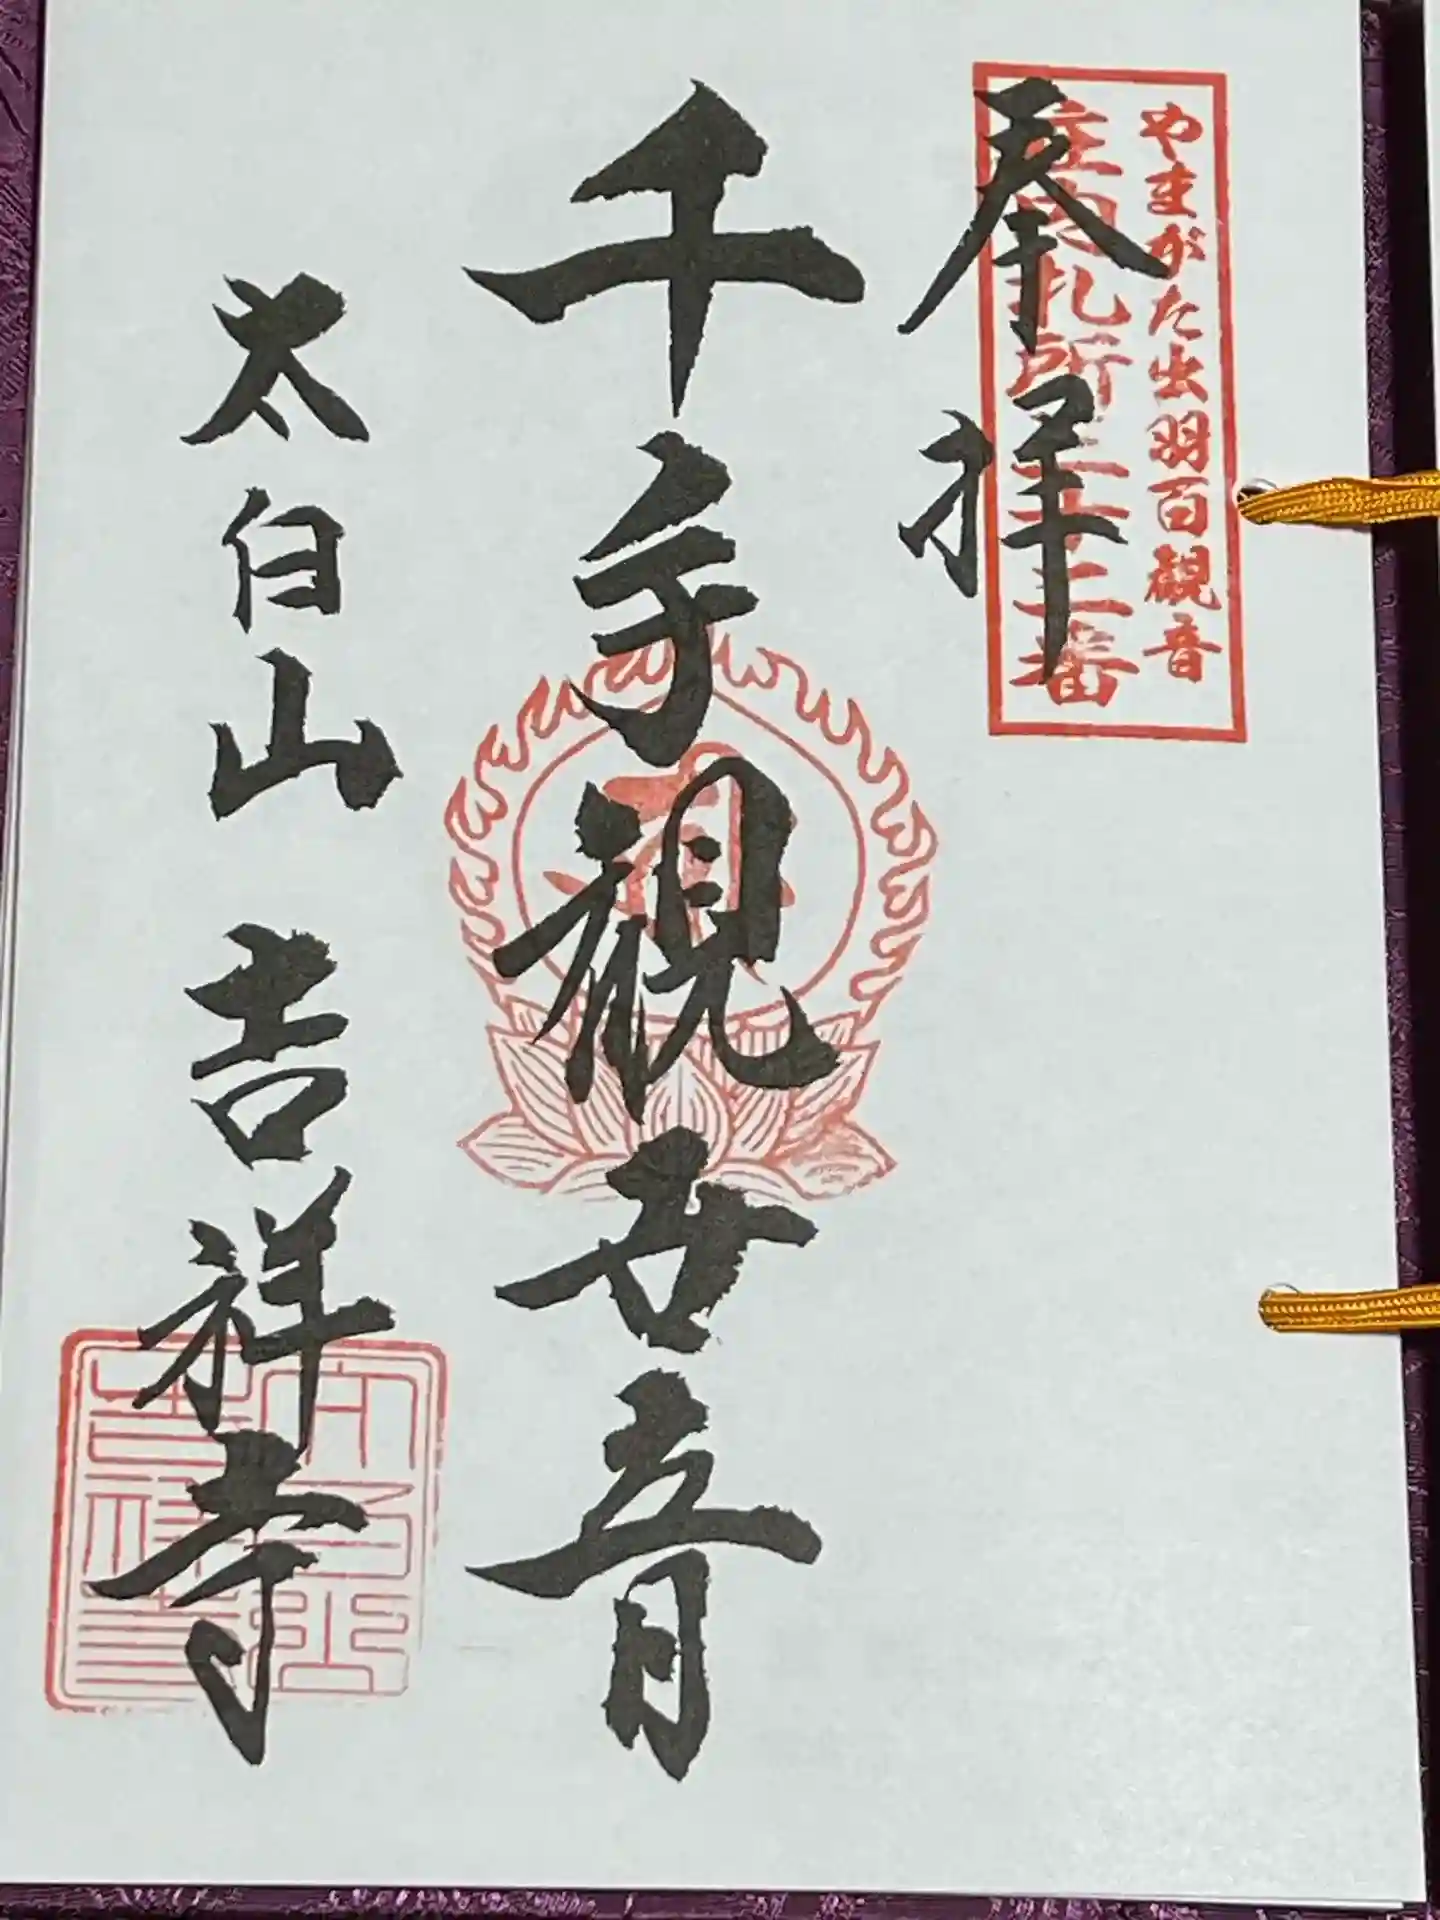 やまがた出羽百観音
庄内札所十二番
奉拝
千手観世音
太白山 吉祥寺